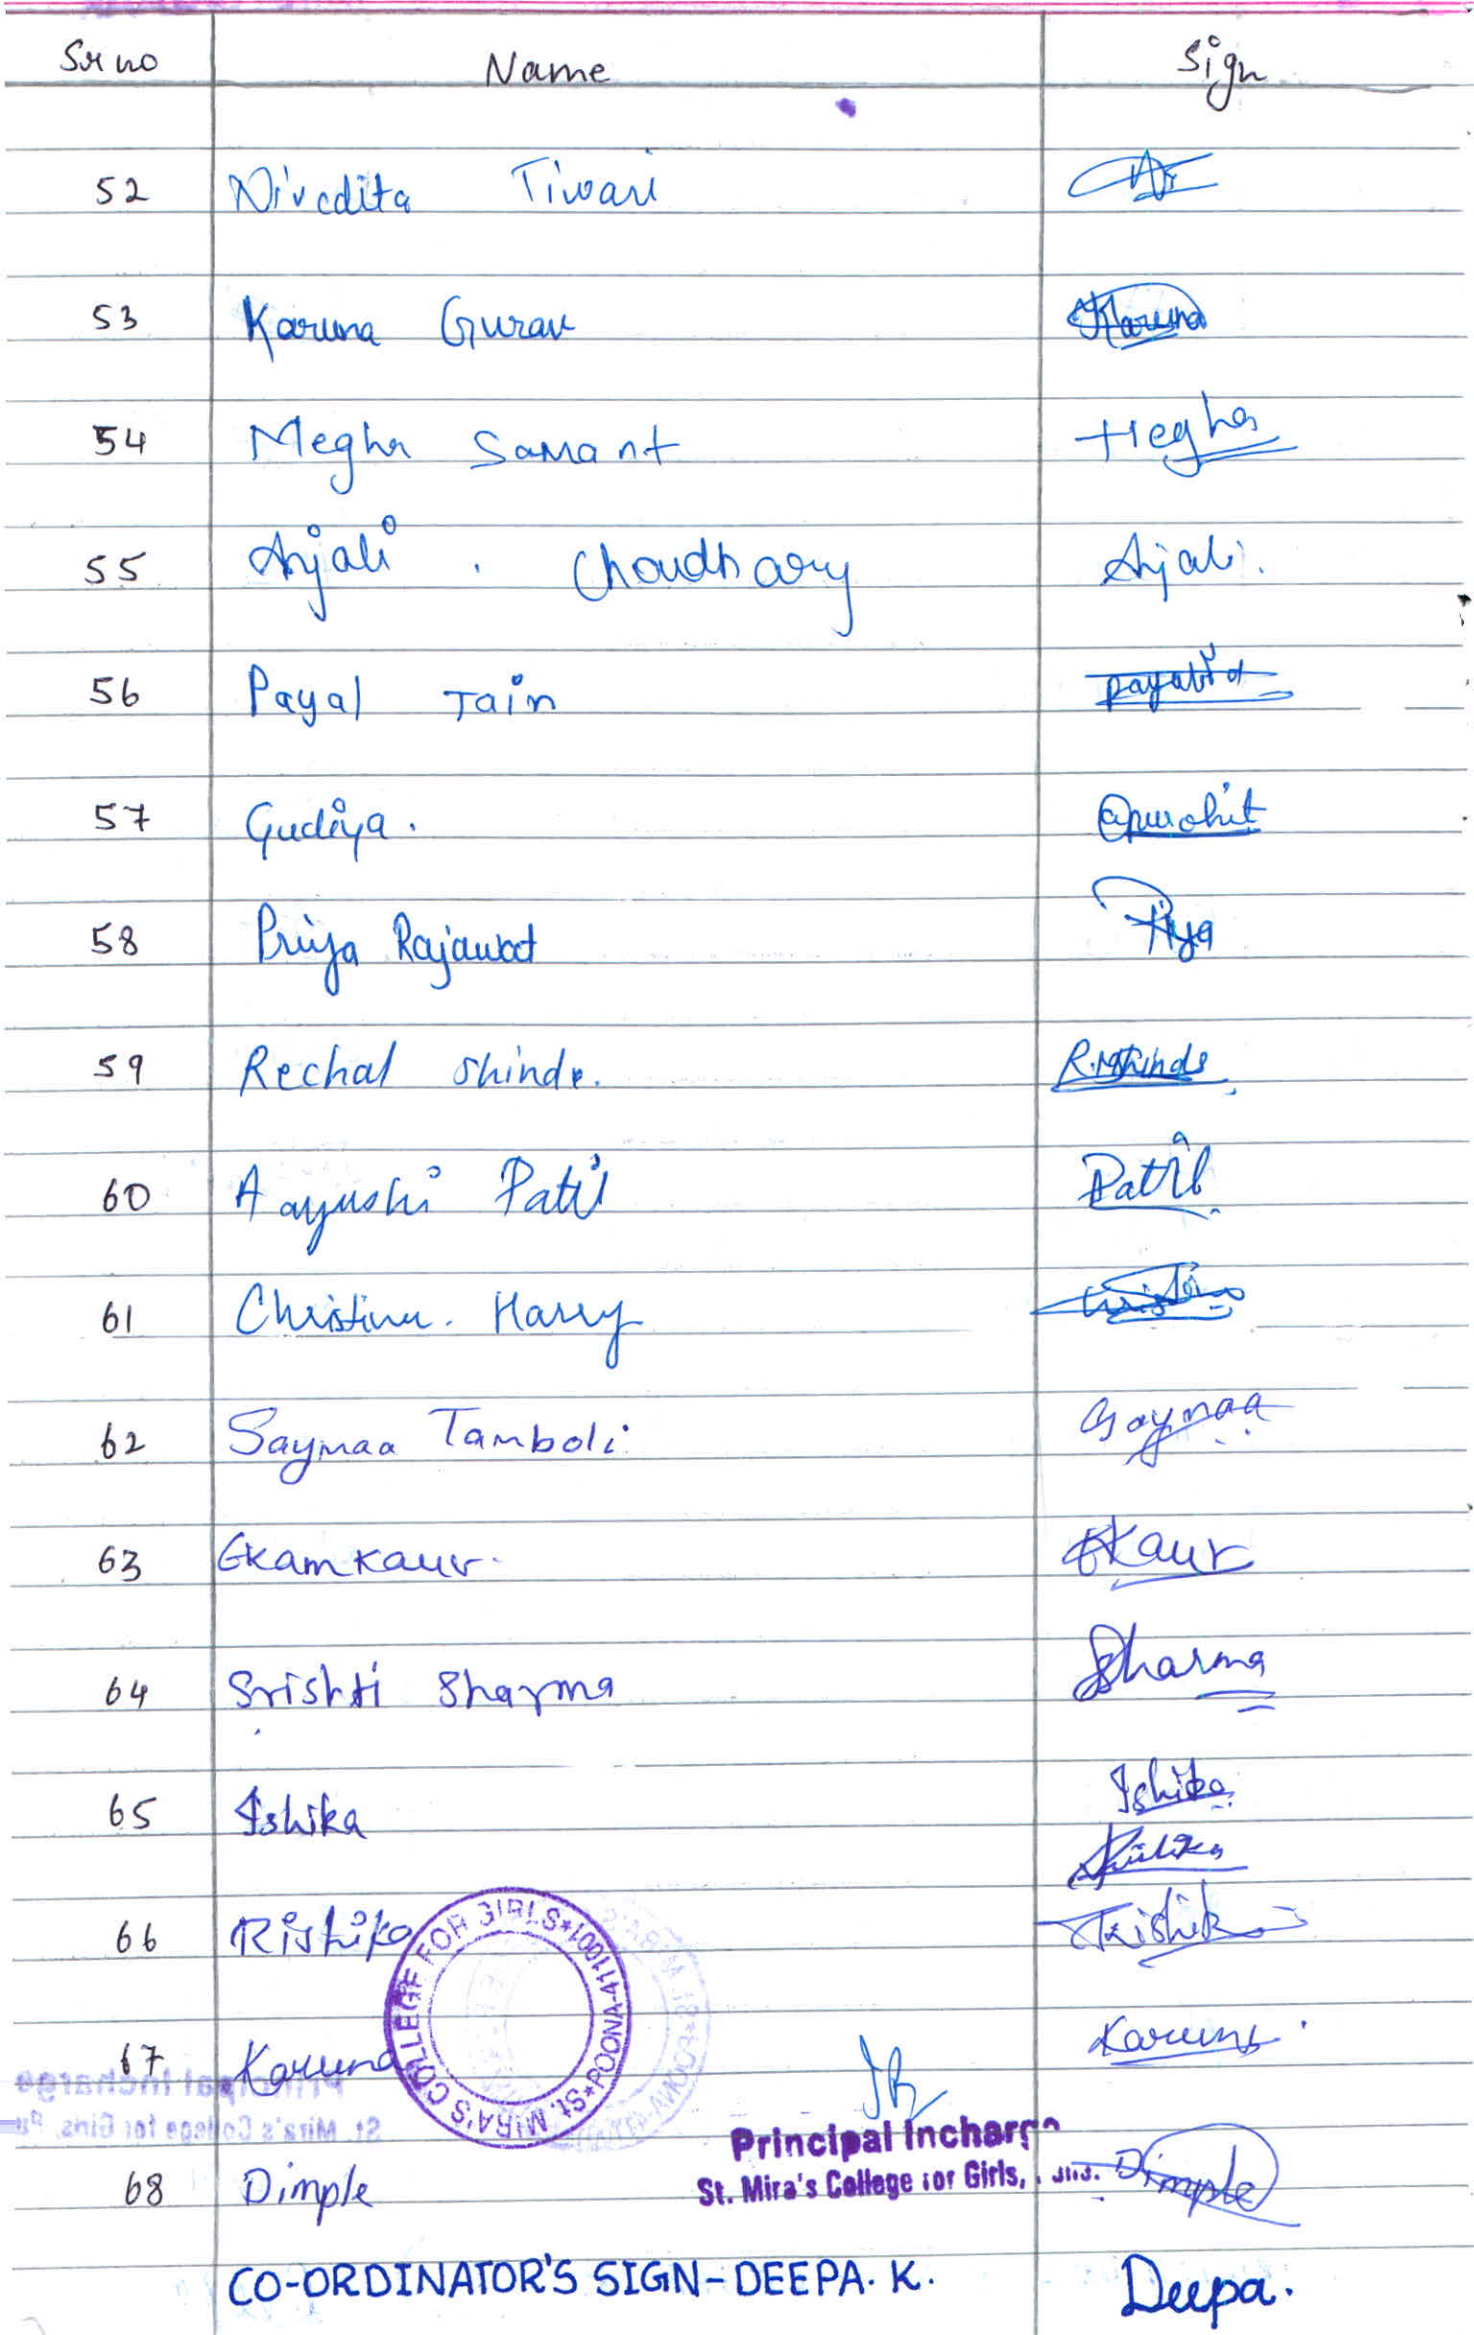 Sr no Name Sign
52 Nivedita Tiwari
53 Karuna Gurav Karuna
54 Megha Samant Megha
55 Anjali . Choudhary Anjali.
56 Payal Jain
57 Gudiya. Gpurohit
58 Priya Rajawat Priya
59 Rechal Shinde. R.Shinde
60 Aayushi Patil Patil
61 Christina. Harry Christina
62 Saymaa Tamboli Saymaa
63 Ekam Kaur. EKaur
64 Srishti Sharma Sharma
65 Ishika Ishika
66 Rishika Rishika
67 Karuna Karuna
68 Dimple Dimple
St. MIRA'S COLLEGE FOR GIRLS*POONA-411001*
Principal Incharge
St. Mira's College for Girls,
CO-ORDINATOR'S SIGN-DEEPA. K. Deepa.